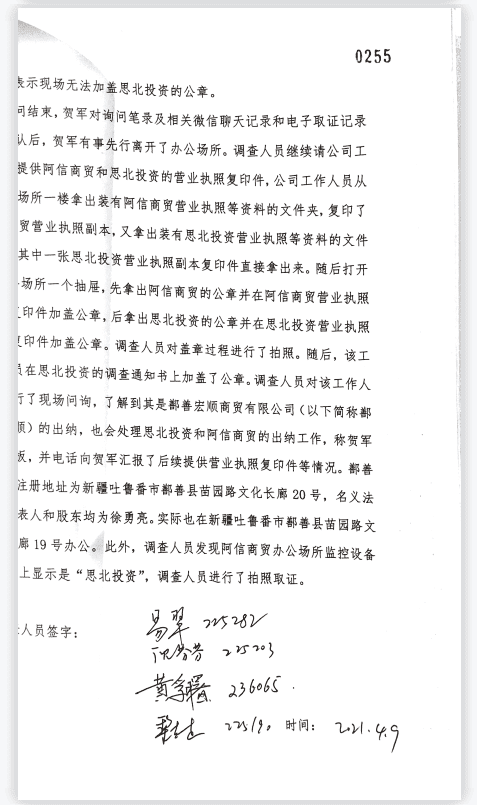 0255
表示现场无法加盖思北投资的公章。
问结束，贺军对询问笔录及相关微信聊天记录和电子取证记录
认后，贺军有事先行离开了办公场所。调查人员继续请公司工
提供阿信商贸和思北投资的营业执照复印件，公司工作人员从
场所一楼拿出装有阿信商贸营业执照等资料的文件夹，复印了
贸营业执照副本，又拿出装有思北投资营业执照等资料的文件
其中一张思北投资营业执照副本复印件直接拿出来。随后打开
场所一个抽屉，先拿出阿信商贸的公章并在阿信商贸营业执照
复印件加盖公章，后拿出思北投资的公章并在思北投资营业执照
复印件加盖公章。调查人员对盖章过程进行了拍照。随后，该工
员在思北投资的调查通知书上加盖了公章。调查人员对该工作人
行了现场问询，了解到其是鄯善宏顺商贸有限公司（以下简称鄯
顺）的出纳，也会处理思北投资和阿信商贸的出纳工作，称贺军
板，并电话向贺军汇报了后续提供营业执照复印件等情况。鄯善
注册地址为新疆吐鲁番市鄯善县苗园路文化长廊20号，名义法
表人和股东均为徐勇亮。实际也在新疆吐鲁番市鄯善县苗园路文
廊19号办公。此外，调查人员发现阿信商贸办公场所监控设备
上显示是“思北投资”，调查人员进行了拍照取证。
人员签字：
225282
225203
236065
225190 时间： 2021.4.9